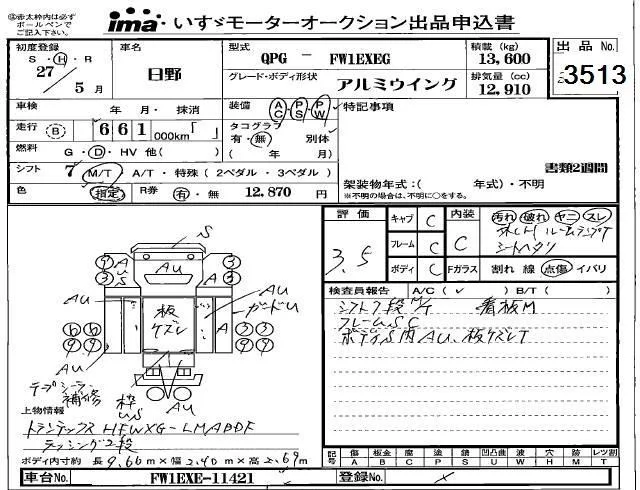 ◎赤太枠内は必ずボールペンでご記入下さい。
ima いすゞモーターオークション出品申込書
初度登録 S・H・R 27 / 5 月
車名 日野
型式 QPG － FW1EXEG
積載 (kg) 13,600
出品 No. 3513
グレード・ボディ形状 アルミウイング
排気量 (cc) 12,910
車検 年 月・抹消
装備 AC PS PW
特記事項
走行 (B) 661 000km「 」
タコグラフ 有・無 別体 ( 年 月)
燃料 G・D・HV 他( )
書類2週間
シフト 7 M/T・A/T・特殊(2ペダル・3ペダル)
架装物年式:( 年式)・不明
※不明の場合は、不明に○をする。
色 指定 R券 有・無 12,870 円
評価 3.5
キャブ C
フレーム C
ボディ C
内装 C
汚れ 破れ ヤニ スレ
ルームランプT
シートヘタリ
Fガラス 割れ 線 点傷 イバリ
検査員報告 A/C(✓) B/T( )
シフト7段M/T 看板M
フレームSC
ボディS内AU、板ケズレT
S
AU
A
US
3 3
AU
AU
ガードU
板ケズレ
A
6 6 3 3
9 9 9 9
AU
テープシーラー補修
枠US
AU
上物情報
トランテックス HFWXG-LMABDF
ラッシング2段
ボディ内寸約 長 9.66m×幅 2.40m×高 2.69m
記号 傷 板金 腐 塗 錆 凹凸曲 波 穴 跡 レツ割
A B C P S U W H M T
車台No. FW1EXE-11421
登録No.